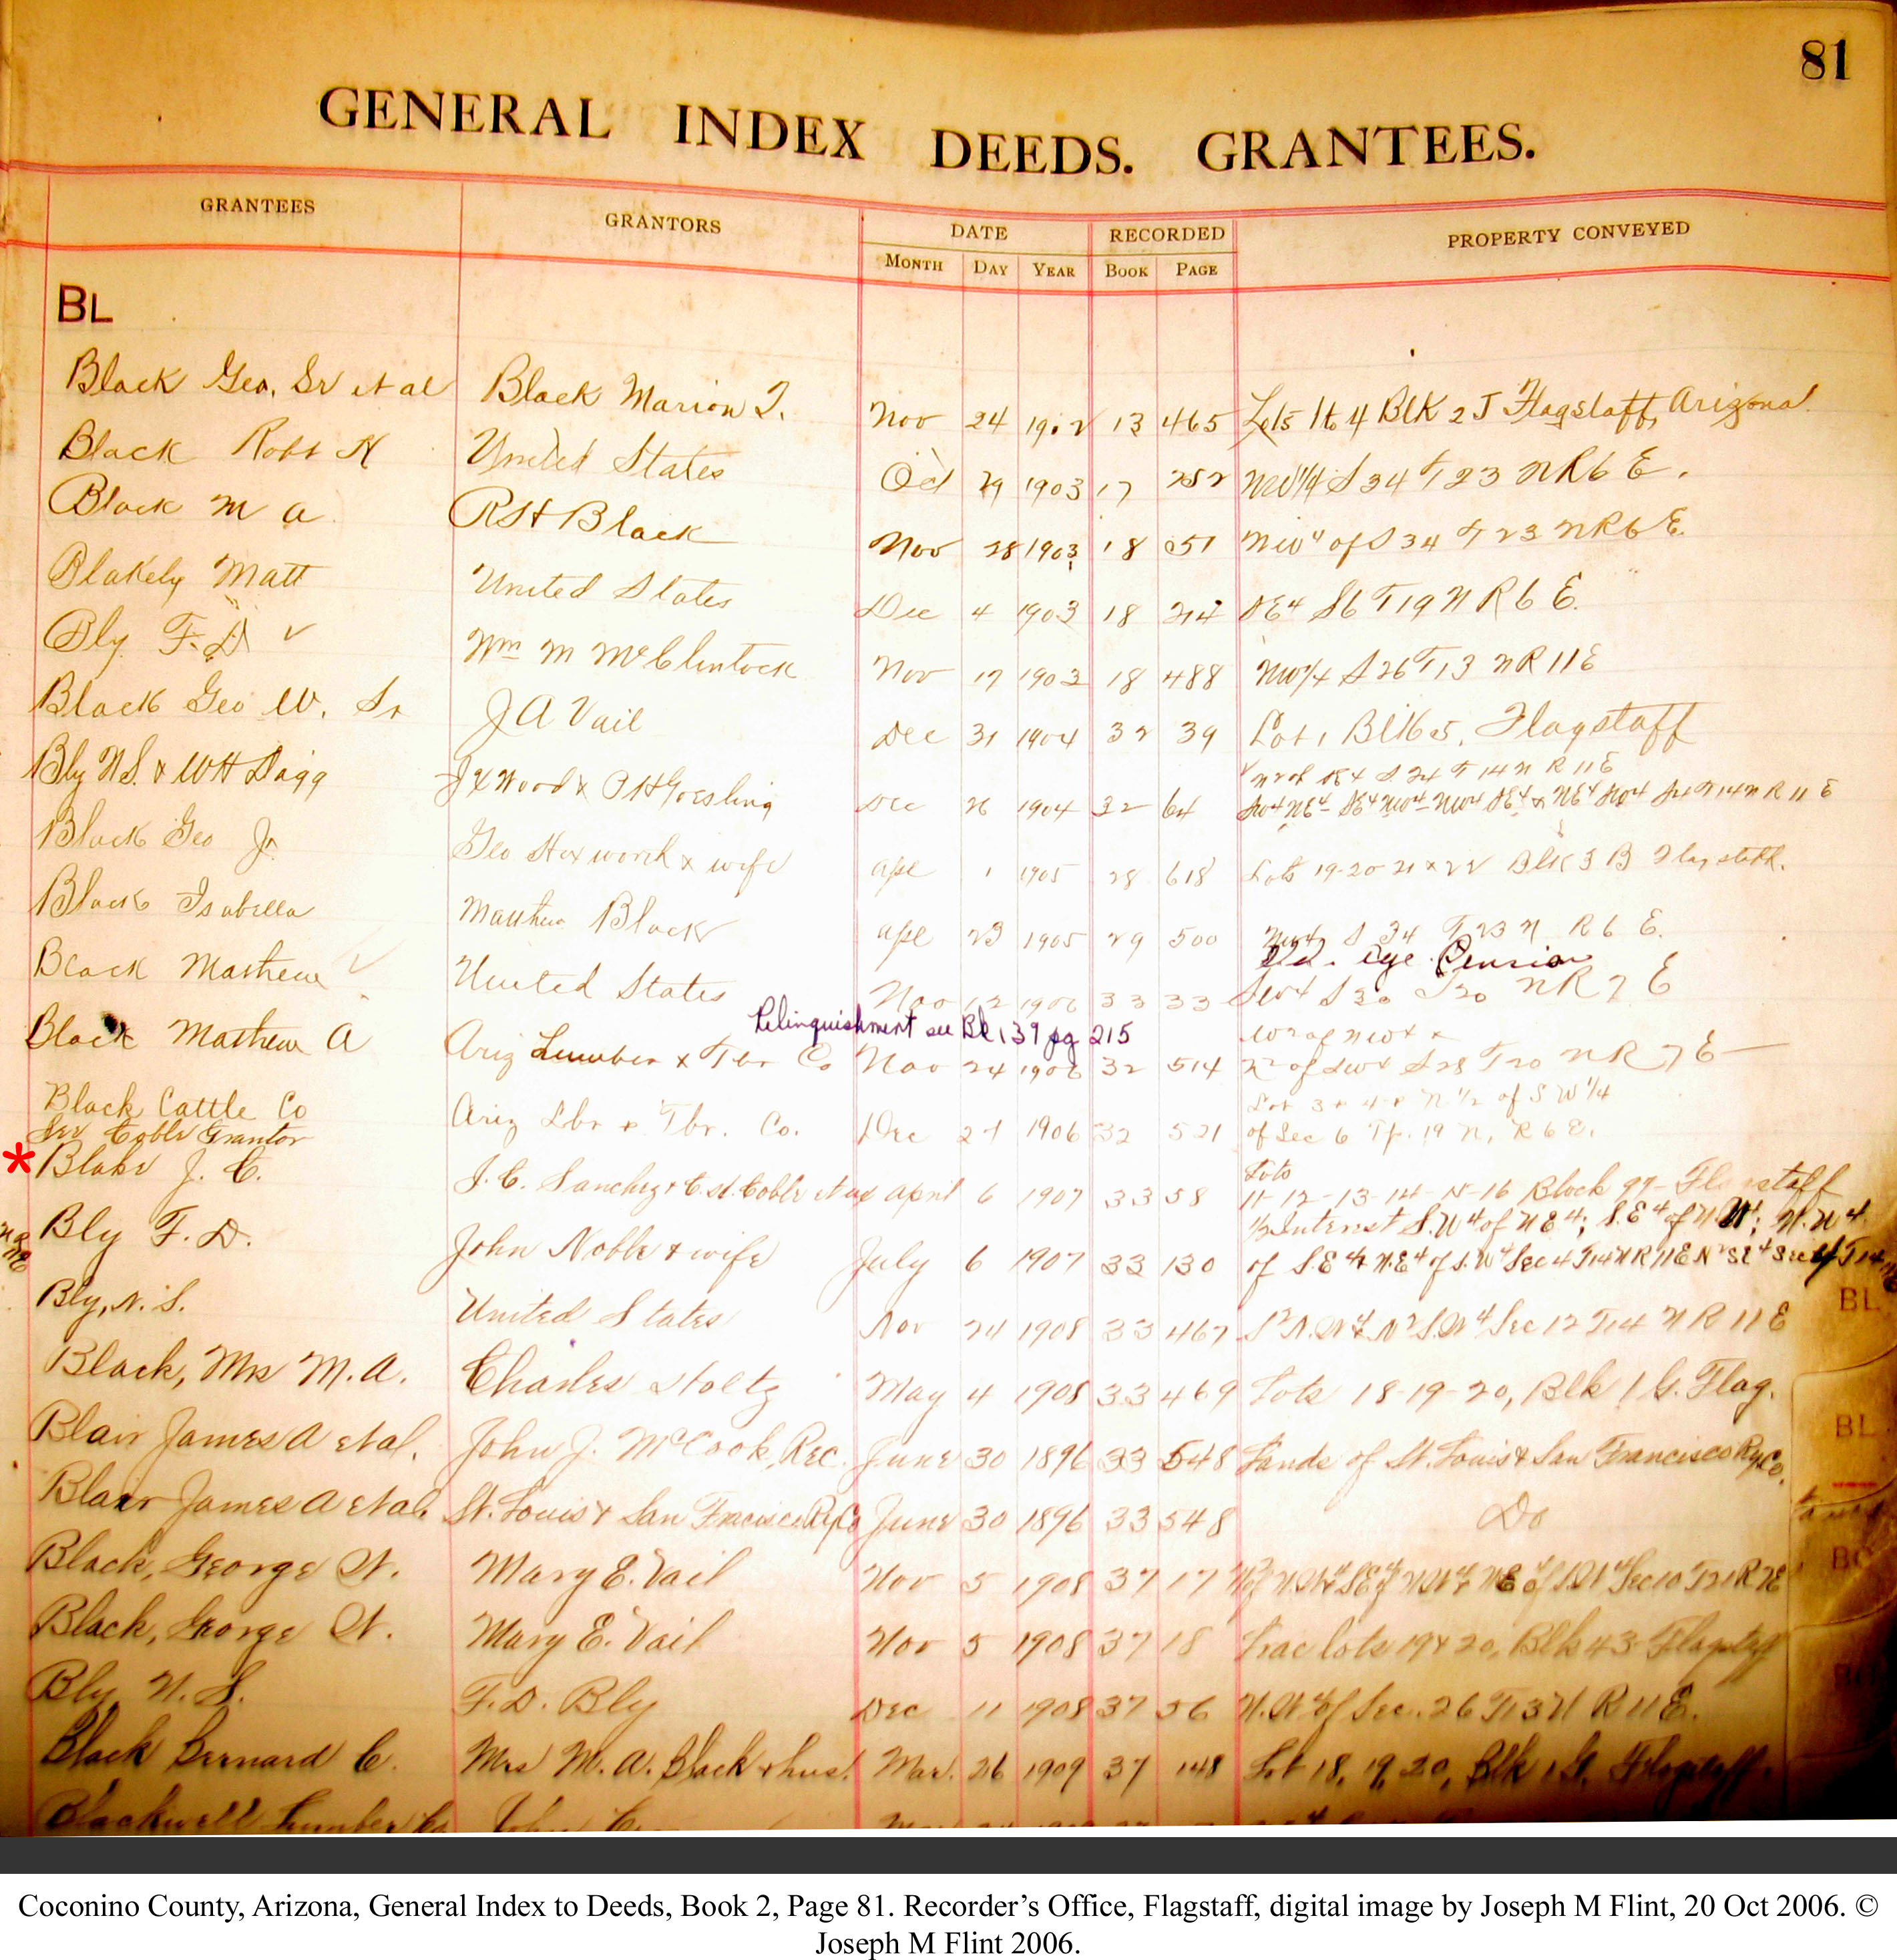 81
GENERAL INDEX DEEDS. GRANTEES.
GRANTEES GRANTORS DATE RECORDED PROPERTY CONVEYED
MONTH DAY YEAR BOOK PAGE
BL
Black Geo, Sr et al Black Marion T. Nov 24 1902 13 465 Lots 1 to 4 Blk 2 J Flagstaff, Arizona
Black Robt H United States Oct 29 1903 17 252 NW1/4 S 34 T 23 N R 6 E.
Black M A R H Black Nov 28 1903 18 051 NW4 of S 34 T 23 N R 6 E.
Blakely Matt United States Dec 4 1903 18 214 SE4 S6 T19 N R 6 E.
Bly F. D ✓ Wm M McClintock Nov 17 1903 18 488 NW1/4 S 26 T 13 N R 11 E
Black Geo W. Sr J A Vail Dec 31 1904 32 39 Lot 1 Blk 5, Flagstaff
S 24 T 14 N R 11 E
Bly N.S. & W H Dagg Wood & Goesling Dec 26 1904 32 64 SW4 NE4 - SE4 NW4 - NW4 SE4 & NE4 SW4 S4 T14 N R 11 E
Black Geo Jr Geo Hoxworth & wife Apl 1 1905 28 618 Lots 19-20-21 & 22 Blk 3 B Flagstaff.
Black Isabella Mathew Black Apl 23 1905 29 500 NW4 S 34 T 23 N R 6 E.
Black Mathew ✓ United States Nov 12 1906 33 33 SW4 S 30 T 20 N R 7 E
Relinquishment see Bk 139 pg 215
W2 of NW4 &
Black Mathew A Ariz Lumber & Tbr Co Nov 24 1906 32 514 N2 of SW4 S 28 T 20 N R 7 E
Lot 3 & 4 & N 1/2 of S W 1/4
Black Cattle Co Ariz Lbr & Tbr. Co. Dec 21 1906 32 521 of Sec 6 Tp. 19 N, R 6 E.
See Coble Grantor
Lots
* Blake J. C. J. C. Sanchez & C. H. Coble et ux April 6 1907 33 58 11-12-13-14-15-16 Block 99 - Flagstaff
1/2 Interest S.W4 of N E4; S.E4 of N W4; N.W4
Bly F. D. John Noble & wife July 6 1907 33 130 of S.E4 & N.E4 of S.W4 Sec 4 T14 N R 11 E N2 SE4 Sec 4 T14
Bly, N. S. United States Nov 24 1908 33 467 S2 N.W4 N2 S.W4 Sec 12 T14 N R 11 E
Black, Mrs M. A. Charles Stoltz May 4 1908 33 469 Lots 18-19-20, Blk 1 G. Flag.
Blair James A et al. John J. McCook, Rec. June 30 1896 33 548 Lands of St. Louis & San Francisco Ry Co.
Blair James A et al. St. Louis & San Fracisco Ry Co June 30 1896 33 548 Do
Black, George W. Mary E. Vail Nov 5 1908 37 17 N2 of N.W4 SE4 of N.W4 & NE4 of S.W4 Sec 10 T21 R 7E
Black, George W. Mary E. Vail Nov 5 1908 37 18 Frac lots 19 & 20, Blk 43 Flagstaff
Bly N. S. F. D. Bly Dec 11 1908 37 56 N.W4 of Sec. 26 T13 N R 11 E.
Black Bernard C. Mrs M. A. Black & hus. Mar. 26 1909 37 148 Lot 18, 19, 20, Blk 1 G. Flagstaff.
Blackwell Lumber Co John
BL
BL
Coconino County, Arizona, General Index to Deeds, Book 2, Page 81. Recorder’s Office, Flagstaff, digital image by Joseph M Flint, 20 Oct 2006. ©
Joseph M Flint 2006.